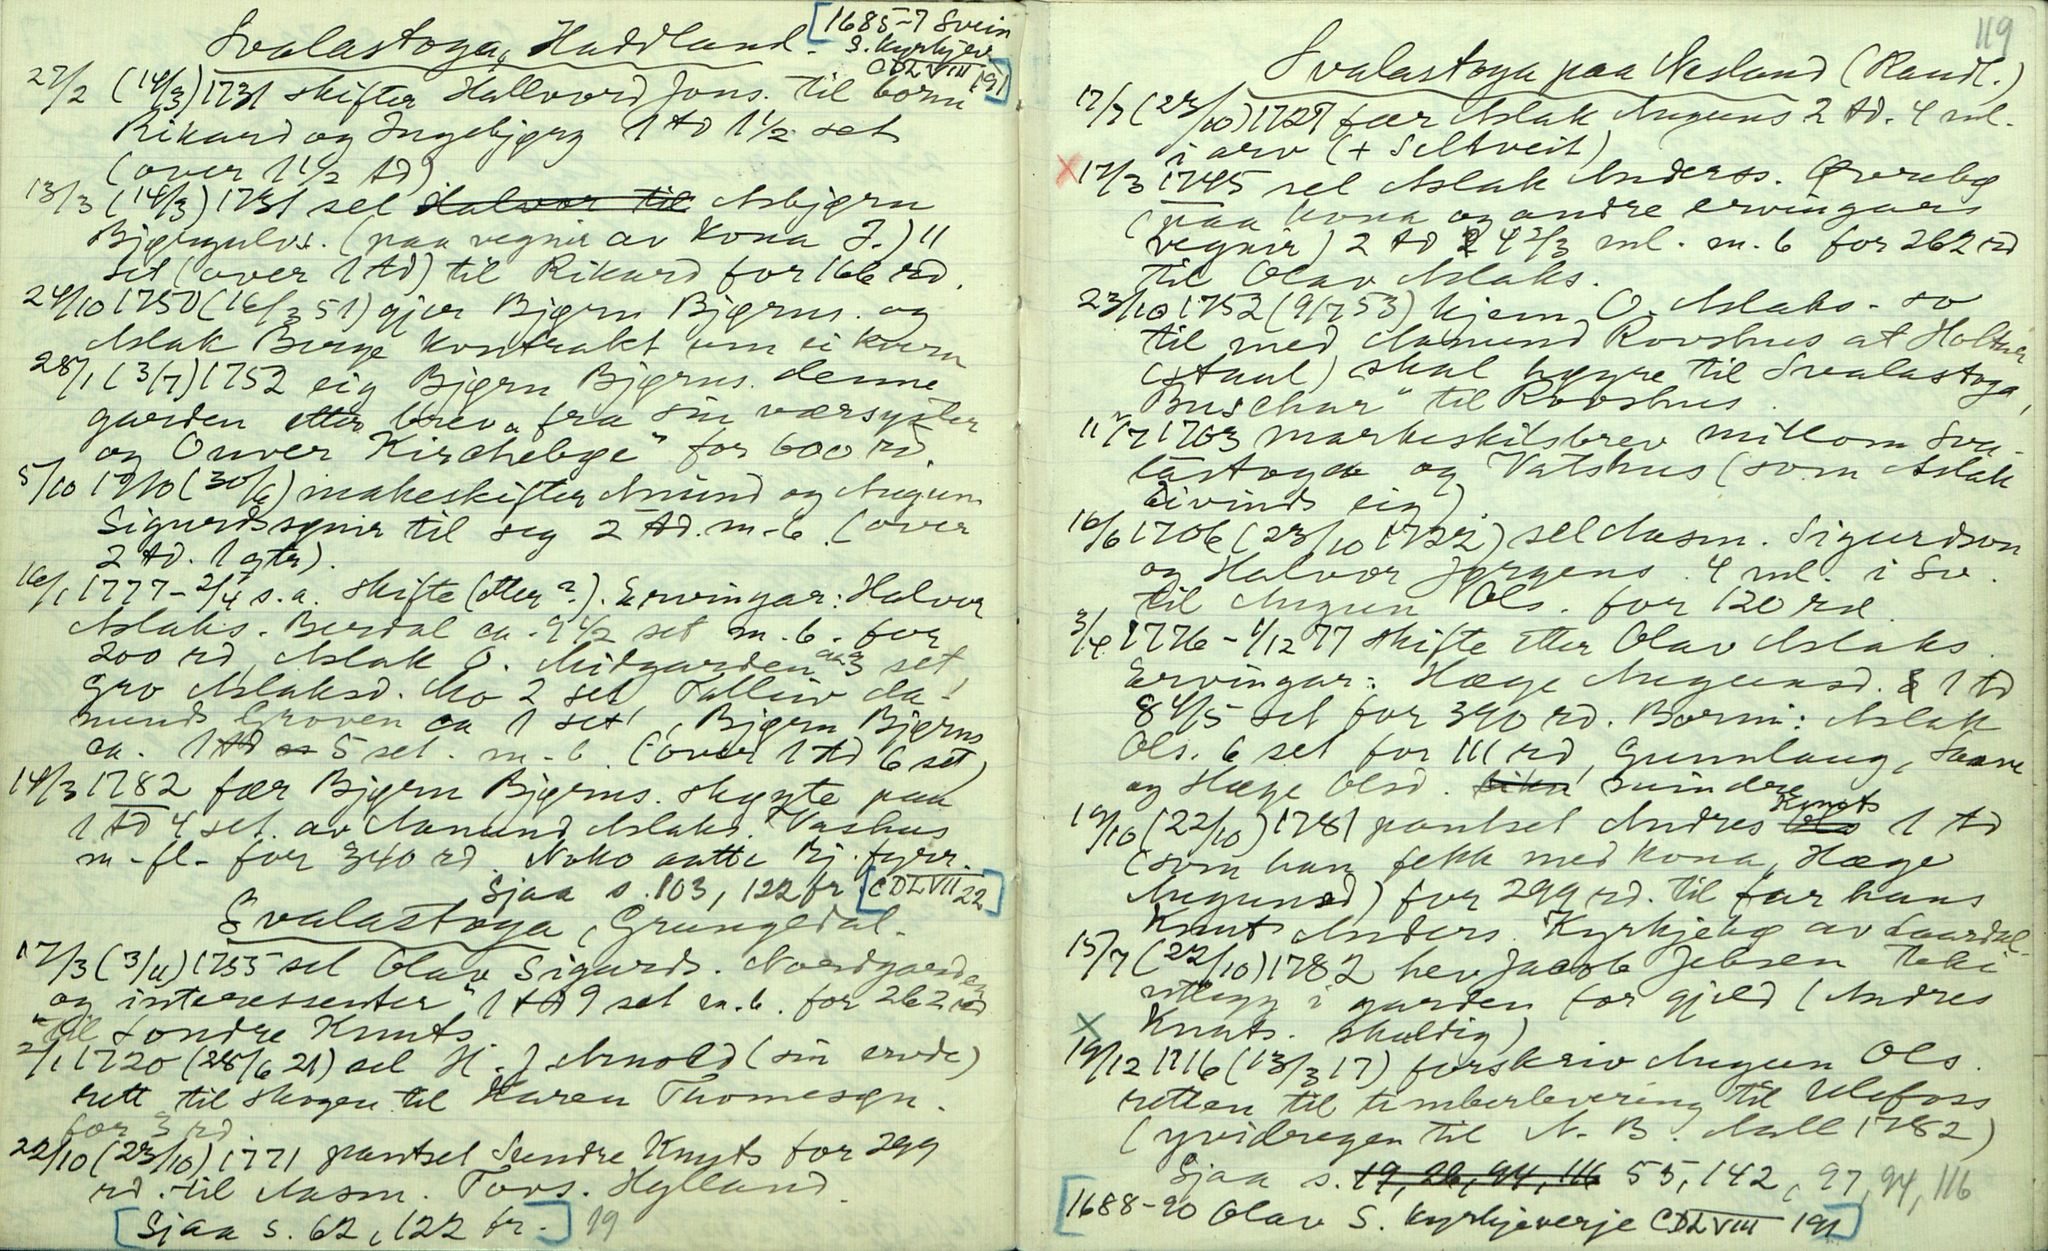 Svalastoga, Haddland.
[1685-7 Svein
S. Kyrkjev.
CDLVIII 191]
27/2 (14/3) 1731 skifter Hallvord Jons. til borni
Rikard og Ingebjørg 1 td 1 1/2 set
(over 1 1/2 td)
13/3 (14/3) 1731 sel Halvor til Asbjørn
Bjørgulvs. (paa vegnir av kona J.) 11
set (over 1 td) til Rikard for 166 rd.
24/10 1750 (16/3 51) gjer Bjørn Bjørns. og
Aslak Berge kontrakt um ei kvern
28/1 (3/7) 1752 eig Bjørn Bjørns. denne
garden etter brev fra sin værsyster
og "Onver Kirchebøe" for 600 rd.
5/10 1710 (30/6) makeskifter Amund og Augun
Sigurdssynir til seg 2 td. m-6 (over
2 td. 1 gtr).
16/1 1777 - 2/4 s.a. skifte (etter ?). Ervingar: Halvor
Aslaks. Berdal ca. 9 1/2 set m. b. for
200 rd, Aslak O. Midgarden ca 3 set
Gro Aslaksd. Mo 2 set Talliv Aa-
munds Groven ca 1 set, Bjørn Bjørns
ca. 1 td 5 set. m. b. (over 1 td 6 set)
14/3 1782 fær Bjørn Bjørns. skøyte paa
1 td 4 set. av Aamund Aslaks. Vashus
m-fl- for 340 rd. Noko aatte Bj. fyrr.
Sjaa s. 103, 122 fr [CDLVII 22]
Svalastoga, Grungedal.
17/3 (3/11) 1755 sel Olav Sigurds. Nordgarden
og "interessenter" 1 td 9 set m.b. for 262 rd
til Sondre Knuts
2/1 1720 (28/6 21) sel H. J. Arnold (sin ervde)
rett til skogen til Karen Thomesøn.
for 3 rd
22/10 (23/10) 1771 pantset Sundre Knuts for 299
rd. til Aasm. Tovs. Hylland.
[Sjaa s. 62, 122 fr.] 19
119
Svalastoga paa Nesland (Raudl.)
17/7 (23/10) 1727 fær Aslak Auguns 2 td. 4 ml.
i arv (+ Seltveit)
x 17/3 1745 sel Aslak Anderss. Øvrebø
(paa kona og andre ervingars
vegnir) 2 td 4 2/3 ml. m. b for 262 rd
til Olav Aslaks.
23/10 1752 (9/7 53) kjem O. Aslaks. so
til med Aamund Rovshus at Holtar
(staul) skal høyre til Svalastoga,
"Buschar" til Rovshus.
11/7 1703 markeskilsbrev millom Sva-
lastoga og Vatshus (som Aslak
Eivinds eig)
16/6 1706 (23/10 1722) sel Aasm. Sigurdson
og Halvor Jørgens. 4 ml. i Sv.
til Augun Ols. for 120 rd.
3/4 1776 - 4/12 77 skifte etter Olav Aslaks.
Ervingar: Hæge Augunsd. 1 td
8 4/5 set for 390 rd. Borni: Aslak
Ols. 6 set for 111 rd, Gunnlaug, Saave
og Hæge Olsd. mindre
19/10 (22/10) 1781 pantset Andres Knuts 1 td
(som han fekk med kona, Hæge
Augunsd) for 299 rd. til far hans
Knut Anders. Kyrkjebø av Laardal.
15/7 (22/10) 1782 hev Jacob Jebsen teke
utlegg i garden for gjeld (Andres
Knuts. skuldig)
x 19/12 1716 (13/3 17) forskriv Augun Ols.
retten til timberlevering til Ulefoss
(yvidregen til N. B. Aall 1782)
Sjaa s. 19, 26, 94, 116 55, 142, 97, 94, 116
[1688-90 Olav S. Kyrkjeverje CDLVIII 191]